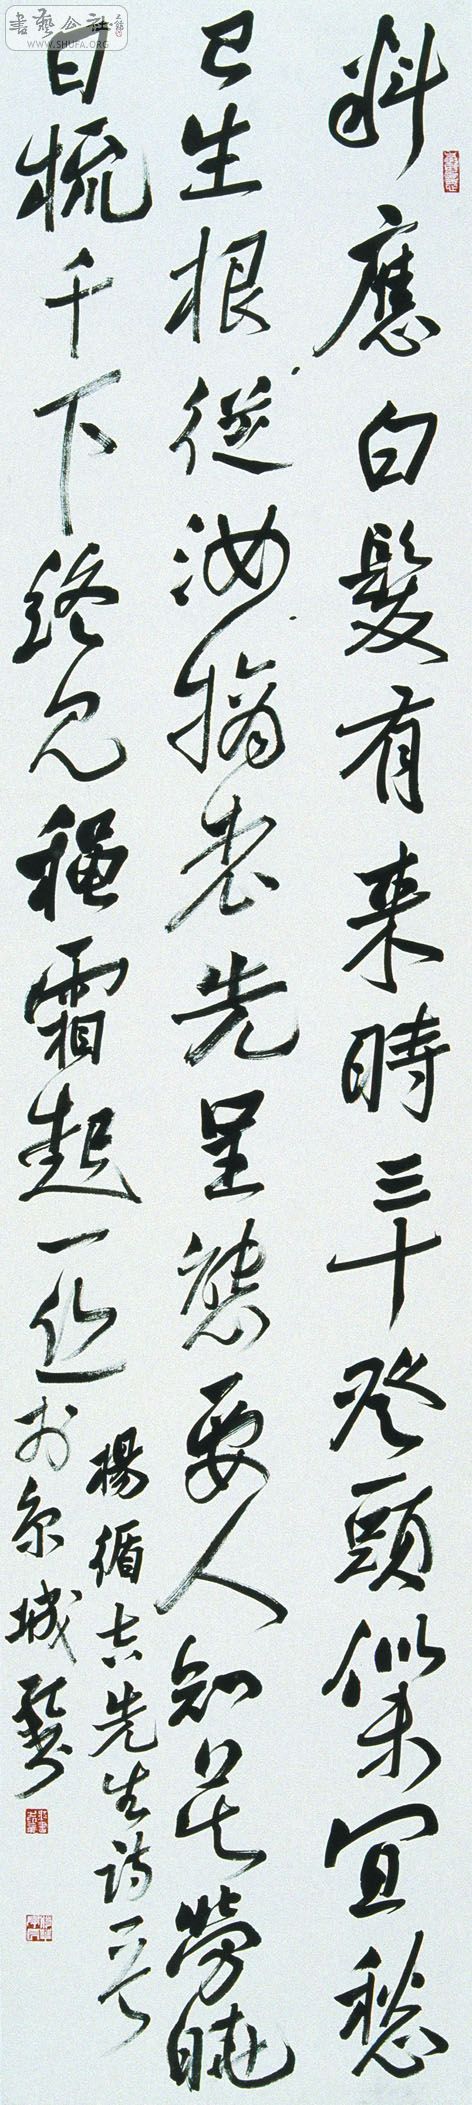 書藝公社
WWW.SHUFA.ORG
料應白髮有来時三十登頭似未宜愁
已生根從汝摘老先呈態要人知莫勞曉
日梳千下終見穐霜起一丝
楊循吉先生詩一首
於京城